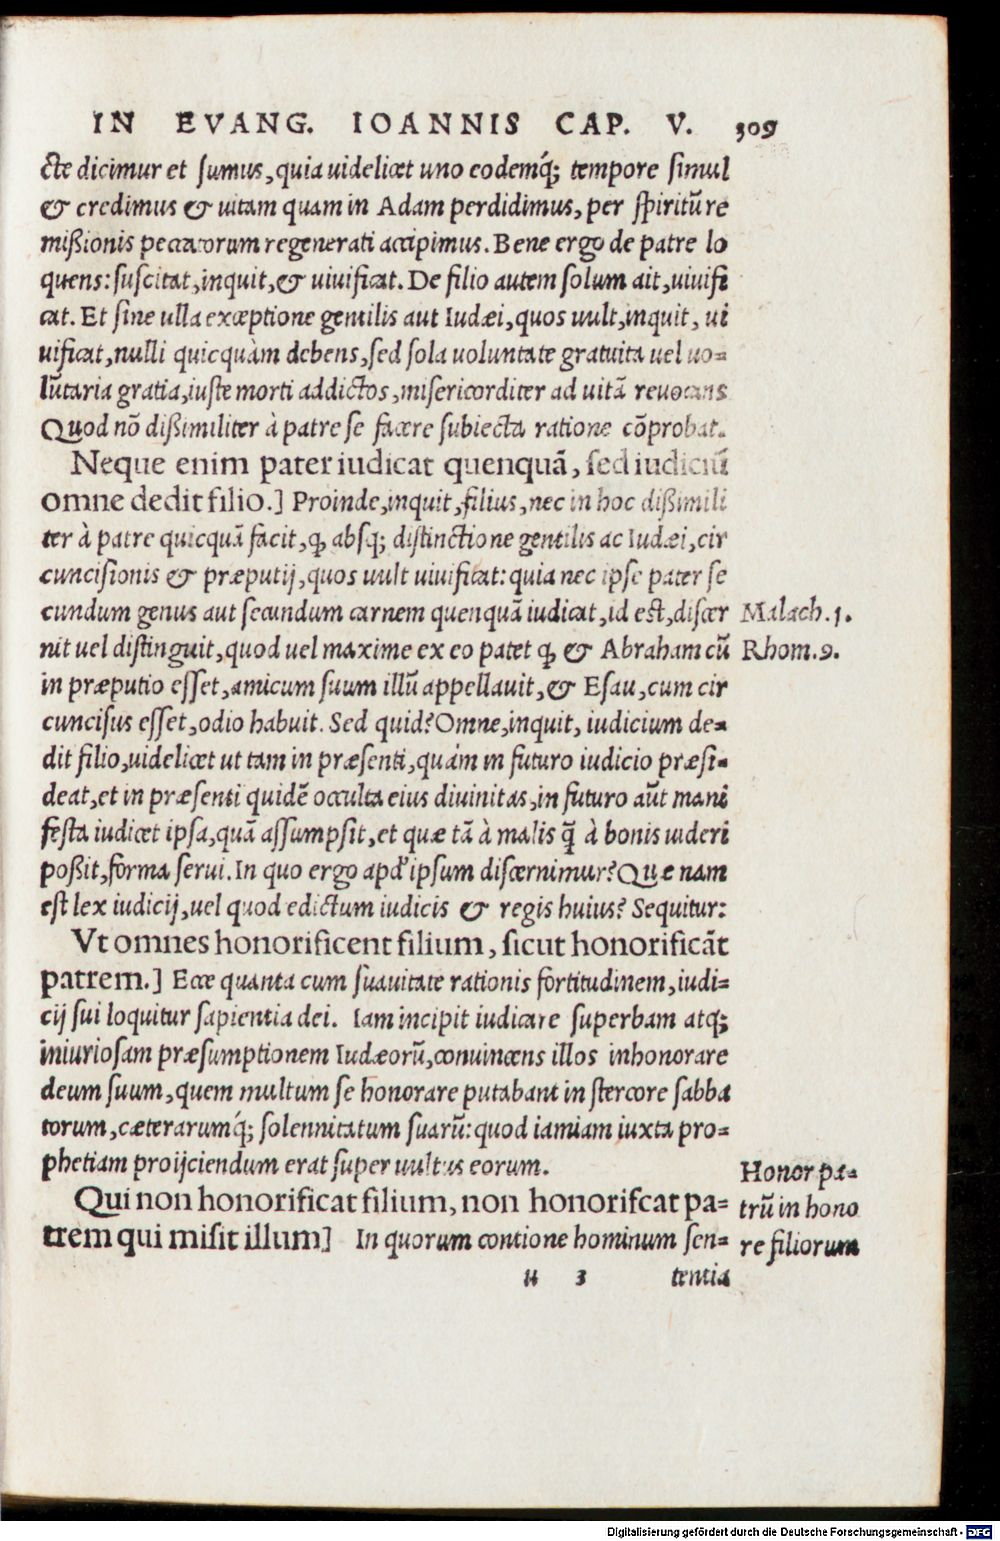 IN EVANG. IOANNIS CAP. V. 309
cte dicimur et sumus, quia uidelicet uno eodemq́; tempore simul
& credimus & uitam quam in Adam perdidimus, per spiritũ re
mißionis peccatorum regenerati accipimus. Bene ergo de patre lo
quens: suscitat, inquit, & uiuificat. De filio autem solum ait, uiuifi
cat. Et sine ulla exceptione gentilis aut Iudæi, quos uult, inquit, ui
uificat, nulli quicquàm debens, sed sola uoluntate gratuita uel uo=
lũtaria gratia, iuste morti addictos, misericorditer ad uitã reuocans
Quod nõ dißimiliter à patre se facere subiecta ratione cõprobat.
Neque enim pater iudicat quenquã, sed iudiciũ
omne dedit filio.] Proinde, inquit, filius, nec in hoc dißimili
ter à patre quicquã facit, ꝙ absq; distinctione gentilis ac Iudæi, cir
cuncisionis & præputij, quos uult uiuificat: quia nec ipse pater se
cundum genus aut secundum carnem quenquã iudicat, id est, discer
Malach.1.
nit uel distinguit, quod uel maxime ex eo patet ꝙ & Abraham cũ
Rhom.9.
in præputio esset, amicum suum illũ appellauit, & Esau, cum cir
cuncisus esset, odio habuit. Sed quid? Omne, inquit, iudicium de=
dit filio, uidelicet ut tam in præsenti, quàm in futuro iudicio præsi=
deat, et in præsenti quidẽ occulta eius diuinitas, in futuro aũt mani
festa iudicet ipsa, quã assumpsit, et quæ tã à malis q̃ à bonis uideri
poßit, forma serui. In quo ergo apd' ipsum discernimur? Quæ nam
est lex iudicij, uel quod edictum iudicis & regis huius? Sequitur:
Vt omnes honorificent filium, sicut honorificãt
patrem.] Ecce quanta cum suauitate rationis fortitudinem, iudi=
cij sui loquitur sapientia dei. Iam incipit iudicare superbam atq;
iniuriosam præsumptionem Iudæorũ, conuincens illos inhonorare
deum suum, quem multum se honorare putabant in stercore sabba
torum, cæterarumq́; solennitatum suarũ: quod iamiam iuxta pro=
phetiam proijciendum erat super uultus eorum.
Qui non honorificat filium, non honorifcat pa=
trem qui misit illum] In quorum contione hominum sen=
Honor pa=
trũ in hono
re filiorum
u 3 tentia
Digitalisierung gefördert durch die Deutsche Forschungsgemeinschaft - DFG